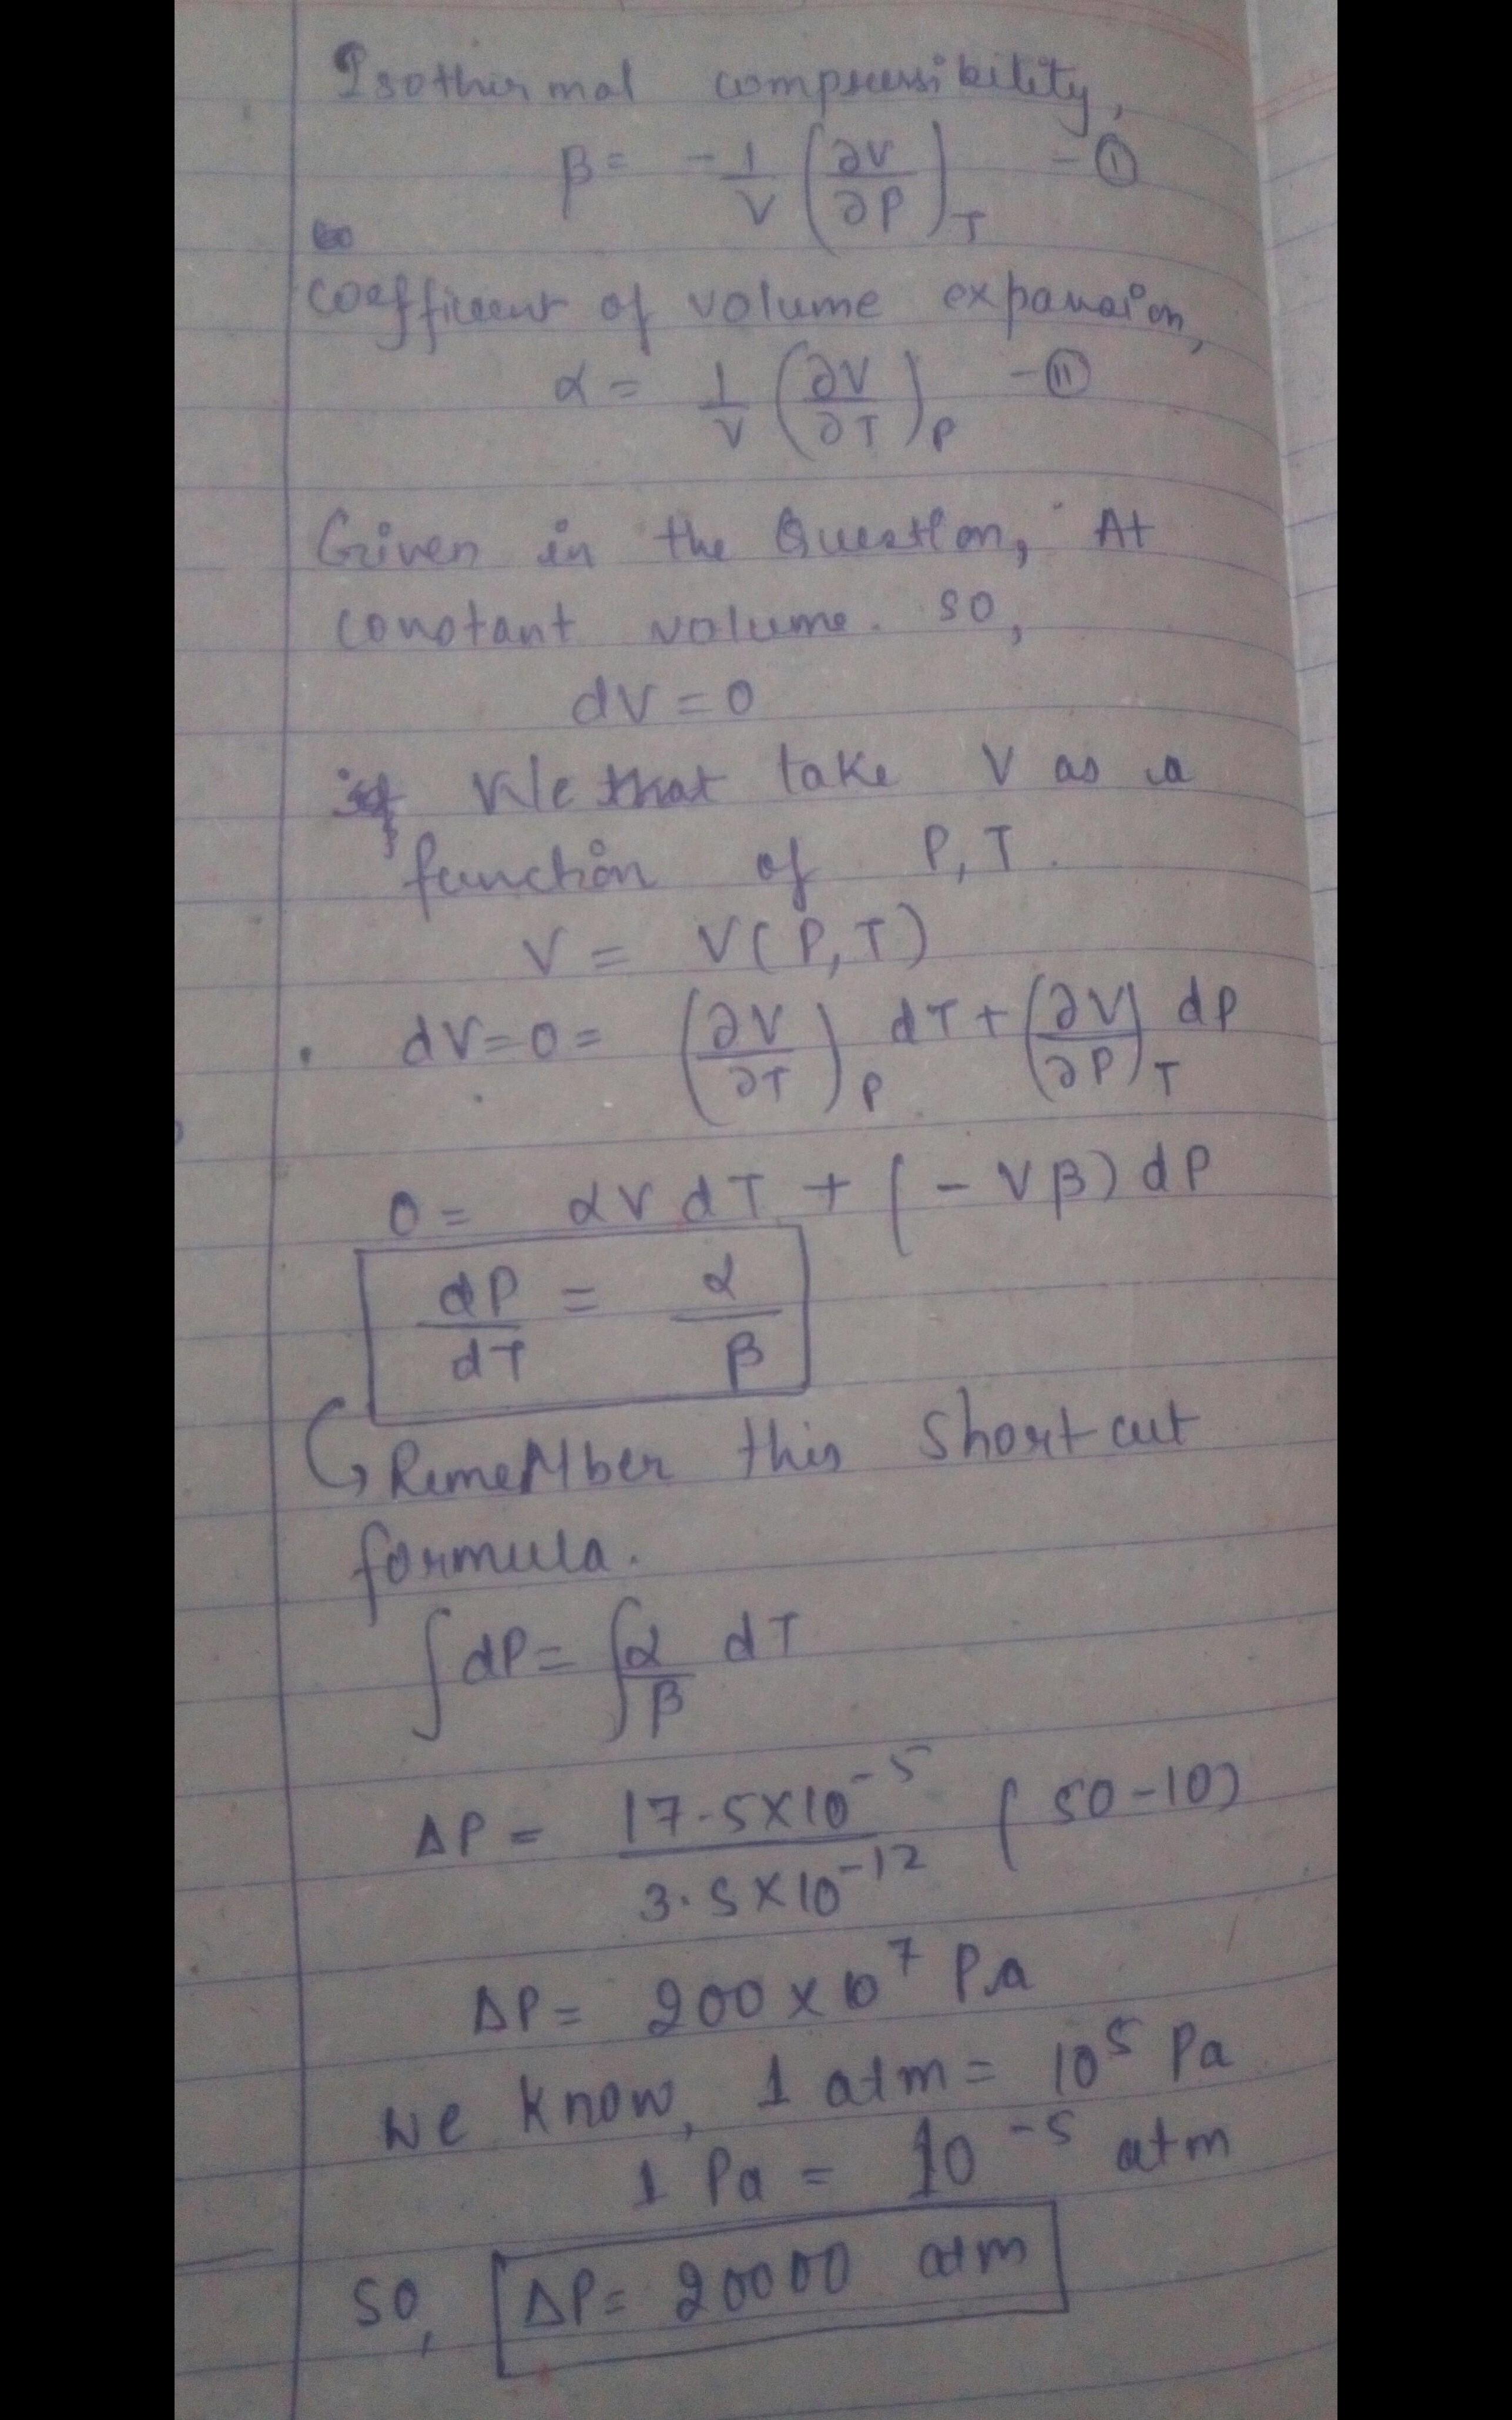 Isothermal compressibility,
β = -1/V (∂V/∂P)_T - (I)
coefficient of volume expansion,
α = 1/V (∂V/∂T)_P - (II)
Given in the Question, At
constant volume. so,
dV = 0
We that take V as a
function of P, T.
V = V(P, T)
dV = 0 = (∂V/∂T)_P dT + (∂V/∂P)_T dP
0 = αV dT + (-Vβ) dP
dP/dT = α/β
↳ Remember this short cut
formula.
∫dP = ∫α/β dT
ΔP = 17.5×10^-5 / 3.5×10^-12 (50-10)
ΔP = 200×10^7 Pa
We know, 1 atm = 10^5 Pa
1 Pa = 10^-5 atm
SO, ΔP = 20000 atm